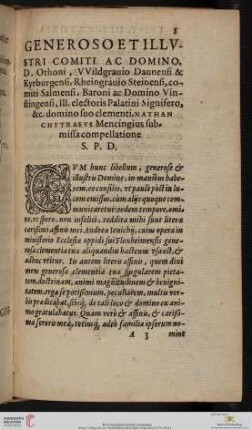 GENEROSO ET ILLV-
STRI COMITI AC DOMINO,
D. Othoni, VVildgrauio Daunensi &
Kyrburgensi, Rheingrauio Steinensi, co-
miti Salmensi, Baroni ac Domino Vin-
stingensi, Ill. electoris Palatini Signifero,
&c. domino suo clementi, NATHAN
CHYTRAEVS Mencingius sub-
missa compellatione
S. P. D.
CVM hunc libellum, generose &
illustris Domine, in manibus habe-
rem, eo consilio, vt paulò pòst in lu-
cem emissus, cum alijs quoque com-
municaretur: eodem tempore, omi-
ne, vt spero, non infelici, reddita mihi sunt litera
carissimi affinis mei Andreæ Ienichij, cuius opera in
ministerio Ecclesiæ oppidi sui Flonheimensis gene-
rosa clementia tua aliquandiu hactenus vsa est, &
adhuc vtitur. In autem literis affinis, quem dixi
meus generosæ clementiæ tuæ singularem pieta-
tem, doctrinam, animi magnitudinem & benigni-
tatem, erga se potissimum, peculiarem, multis ver-
bis prædicabat, sibique de tali loco & domino ex ani-
mo gratulabatur. Quam verò & affinis, & carissi-
ma sororis meæ, totiusque adeò familiæ ipsorum no-
A 3 mine